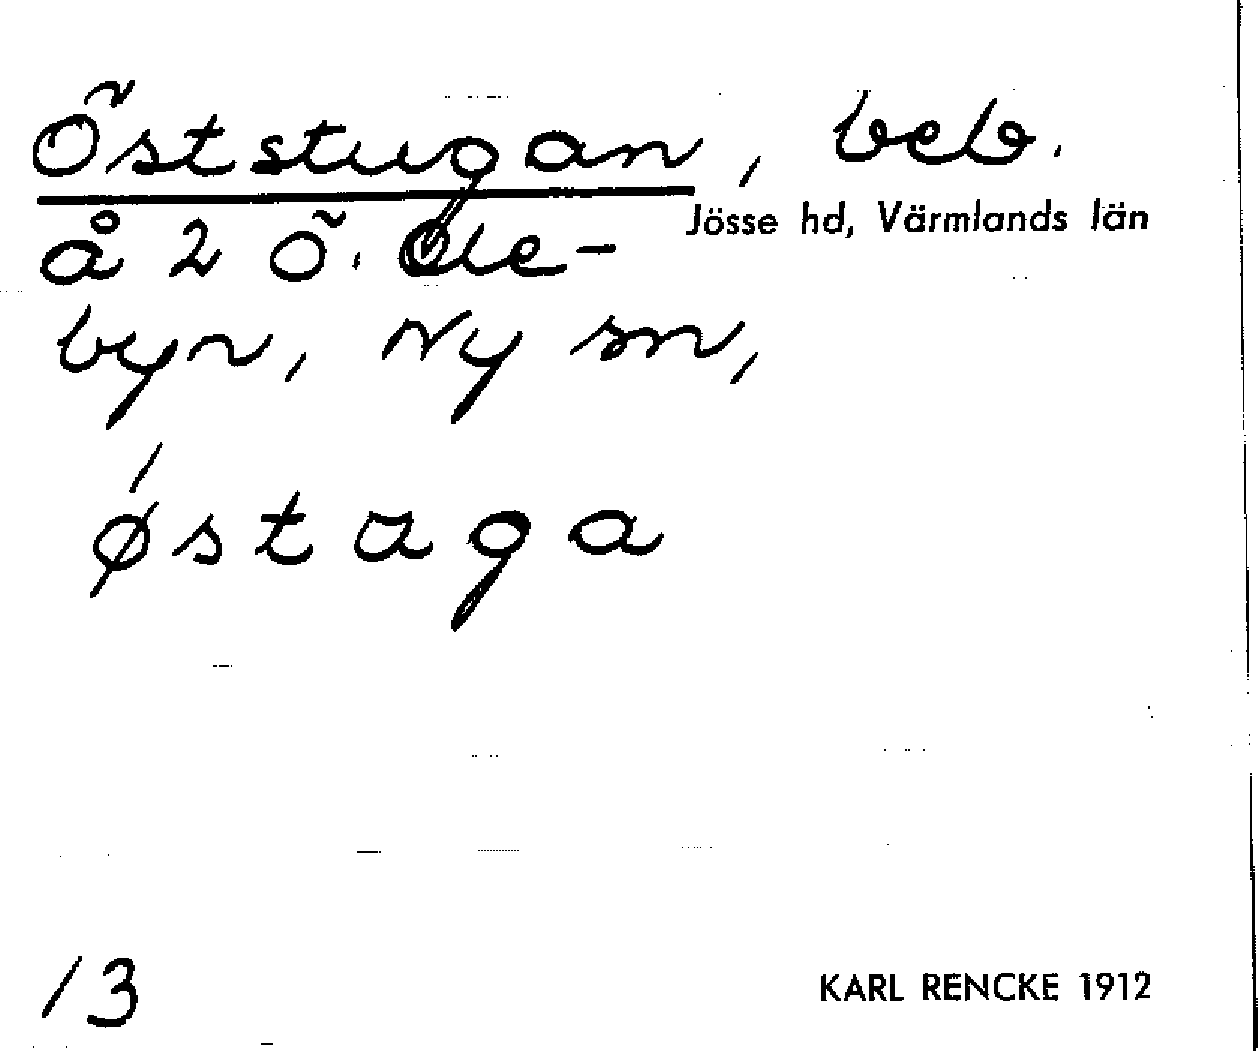 Öststugan, beb.
Jösse hd, Värmlands län
å 2 Ö. Ole-
byn, Ny sn,
ˊøstaga
13
KARL RENCKE 1912